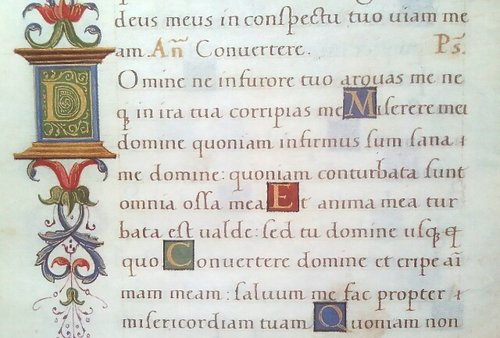 deus meus in conspectu tuo uiam me
am. Añ Convertere. Ps.
Domine ne infurore tuo arguas me ne
q̃ in ira tua corripias me Miserere mei
domine quoniam infirmus sum sana
me domine: quoniam conturbata sunt
omnia ossa mea Et anima mea tur
bata est ualde: sed tu domine usq̃ q̃
quo Convertere domine et eripe aĩ
mam meam: saluum me fac propter
misericordiam tuam Quoniam non